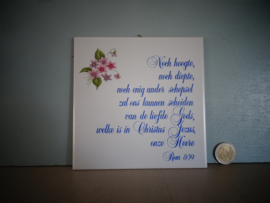 Noch hoogte,
noch diepte,
noch enig ander schepsel
zal ons kunnen scheiden
van de liefde Gods,
welke is in Christus Jezus,
onze Heere
Rom 8:39